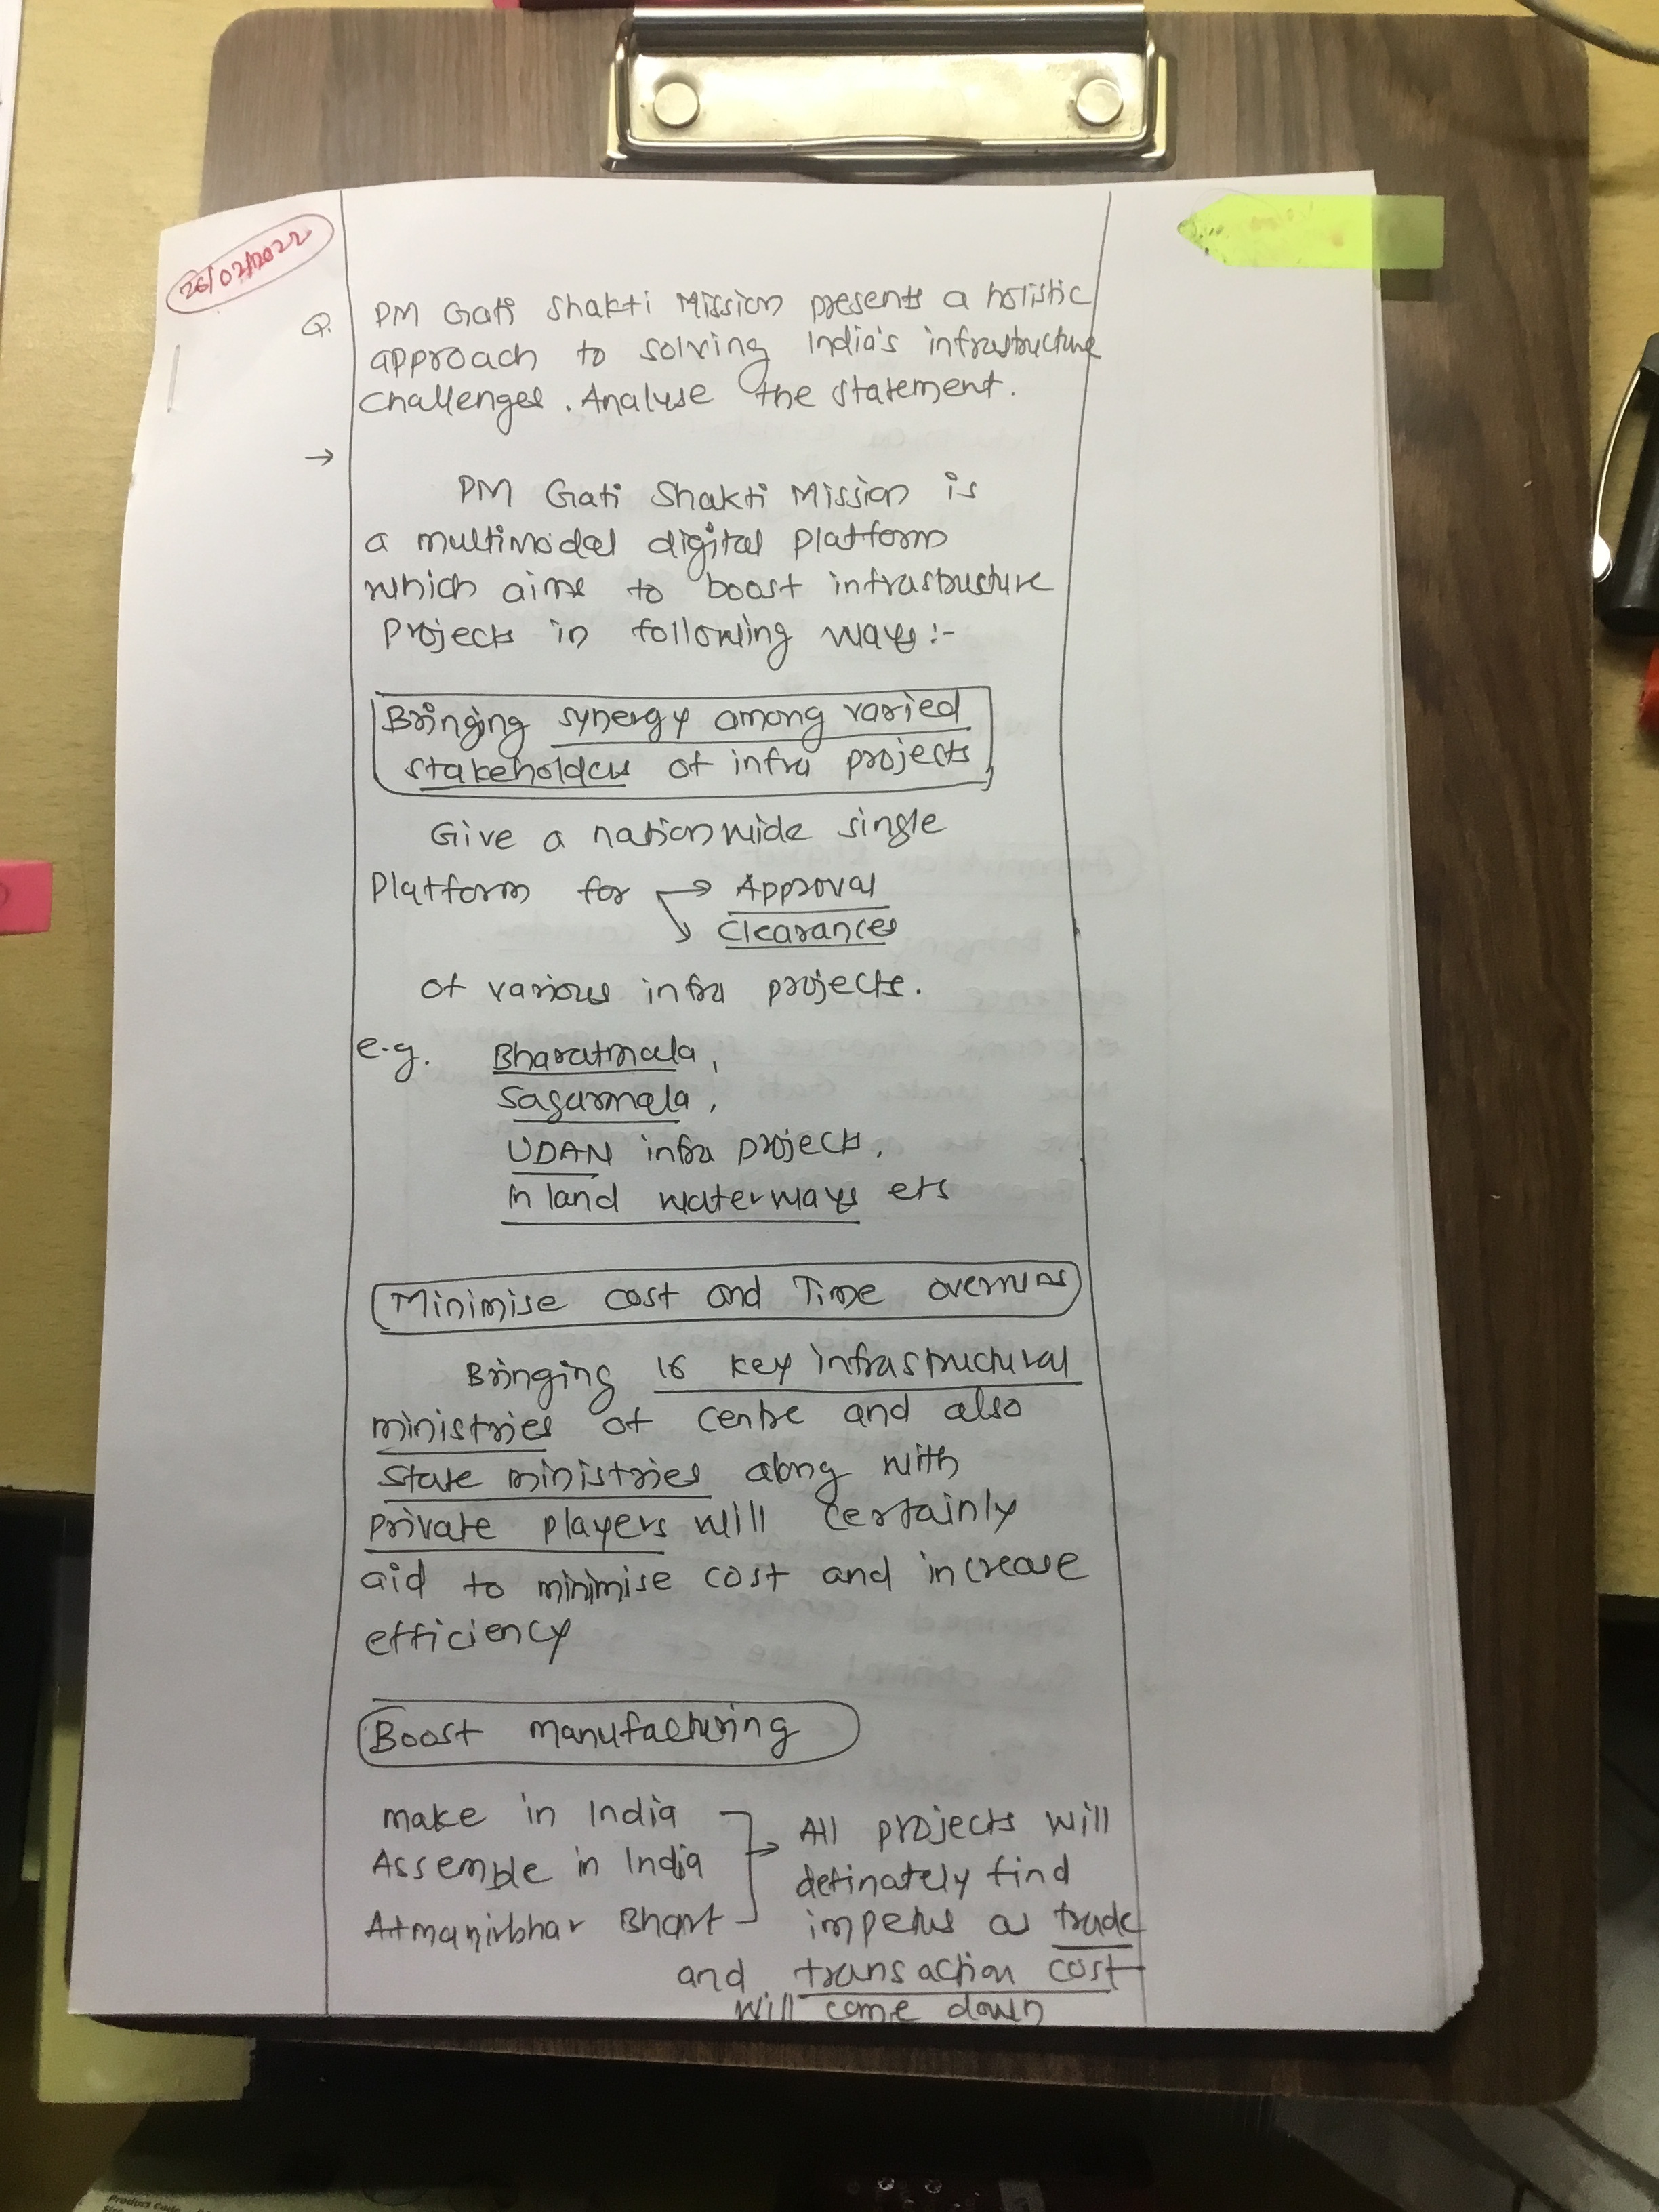 26/02/2022
Q. PM Gati Shakti Mission presents a holistic
approach to solving India's infrastructure
challenges. Analyse the statement.
→
PM Gati Shakti Mission is
a multimodal digital platform
which aims to boost infrastructure
Projects in following ways:-
Bringing synergy among varied
stakeholders of infra projects
Give a nationwide single
Platform for → Approval
Clearances
of various infra projects.
e.g. Bharatmala,
Sagarmala,
UDAN infra projects,
in land waterways ets
Minimise cost and Time overruns
Bringing 16 key infrastructural
ministries of centre and also
state ministries along with
private players will certainly
aid to minimise cost and increase
efficiency
Boost manufacturing
make in India
Assemble in India
Atmanirbhar Bhart
→ All projects will
definately find
impetus as trade
and transaction cost
will come down
Product Code